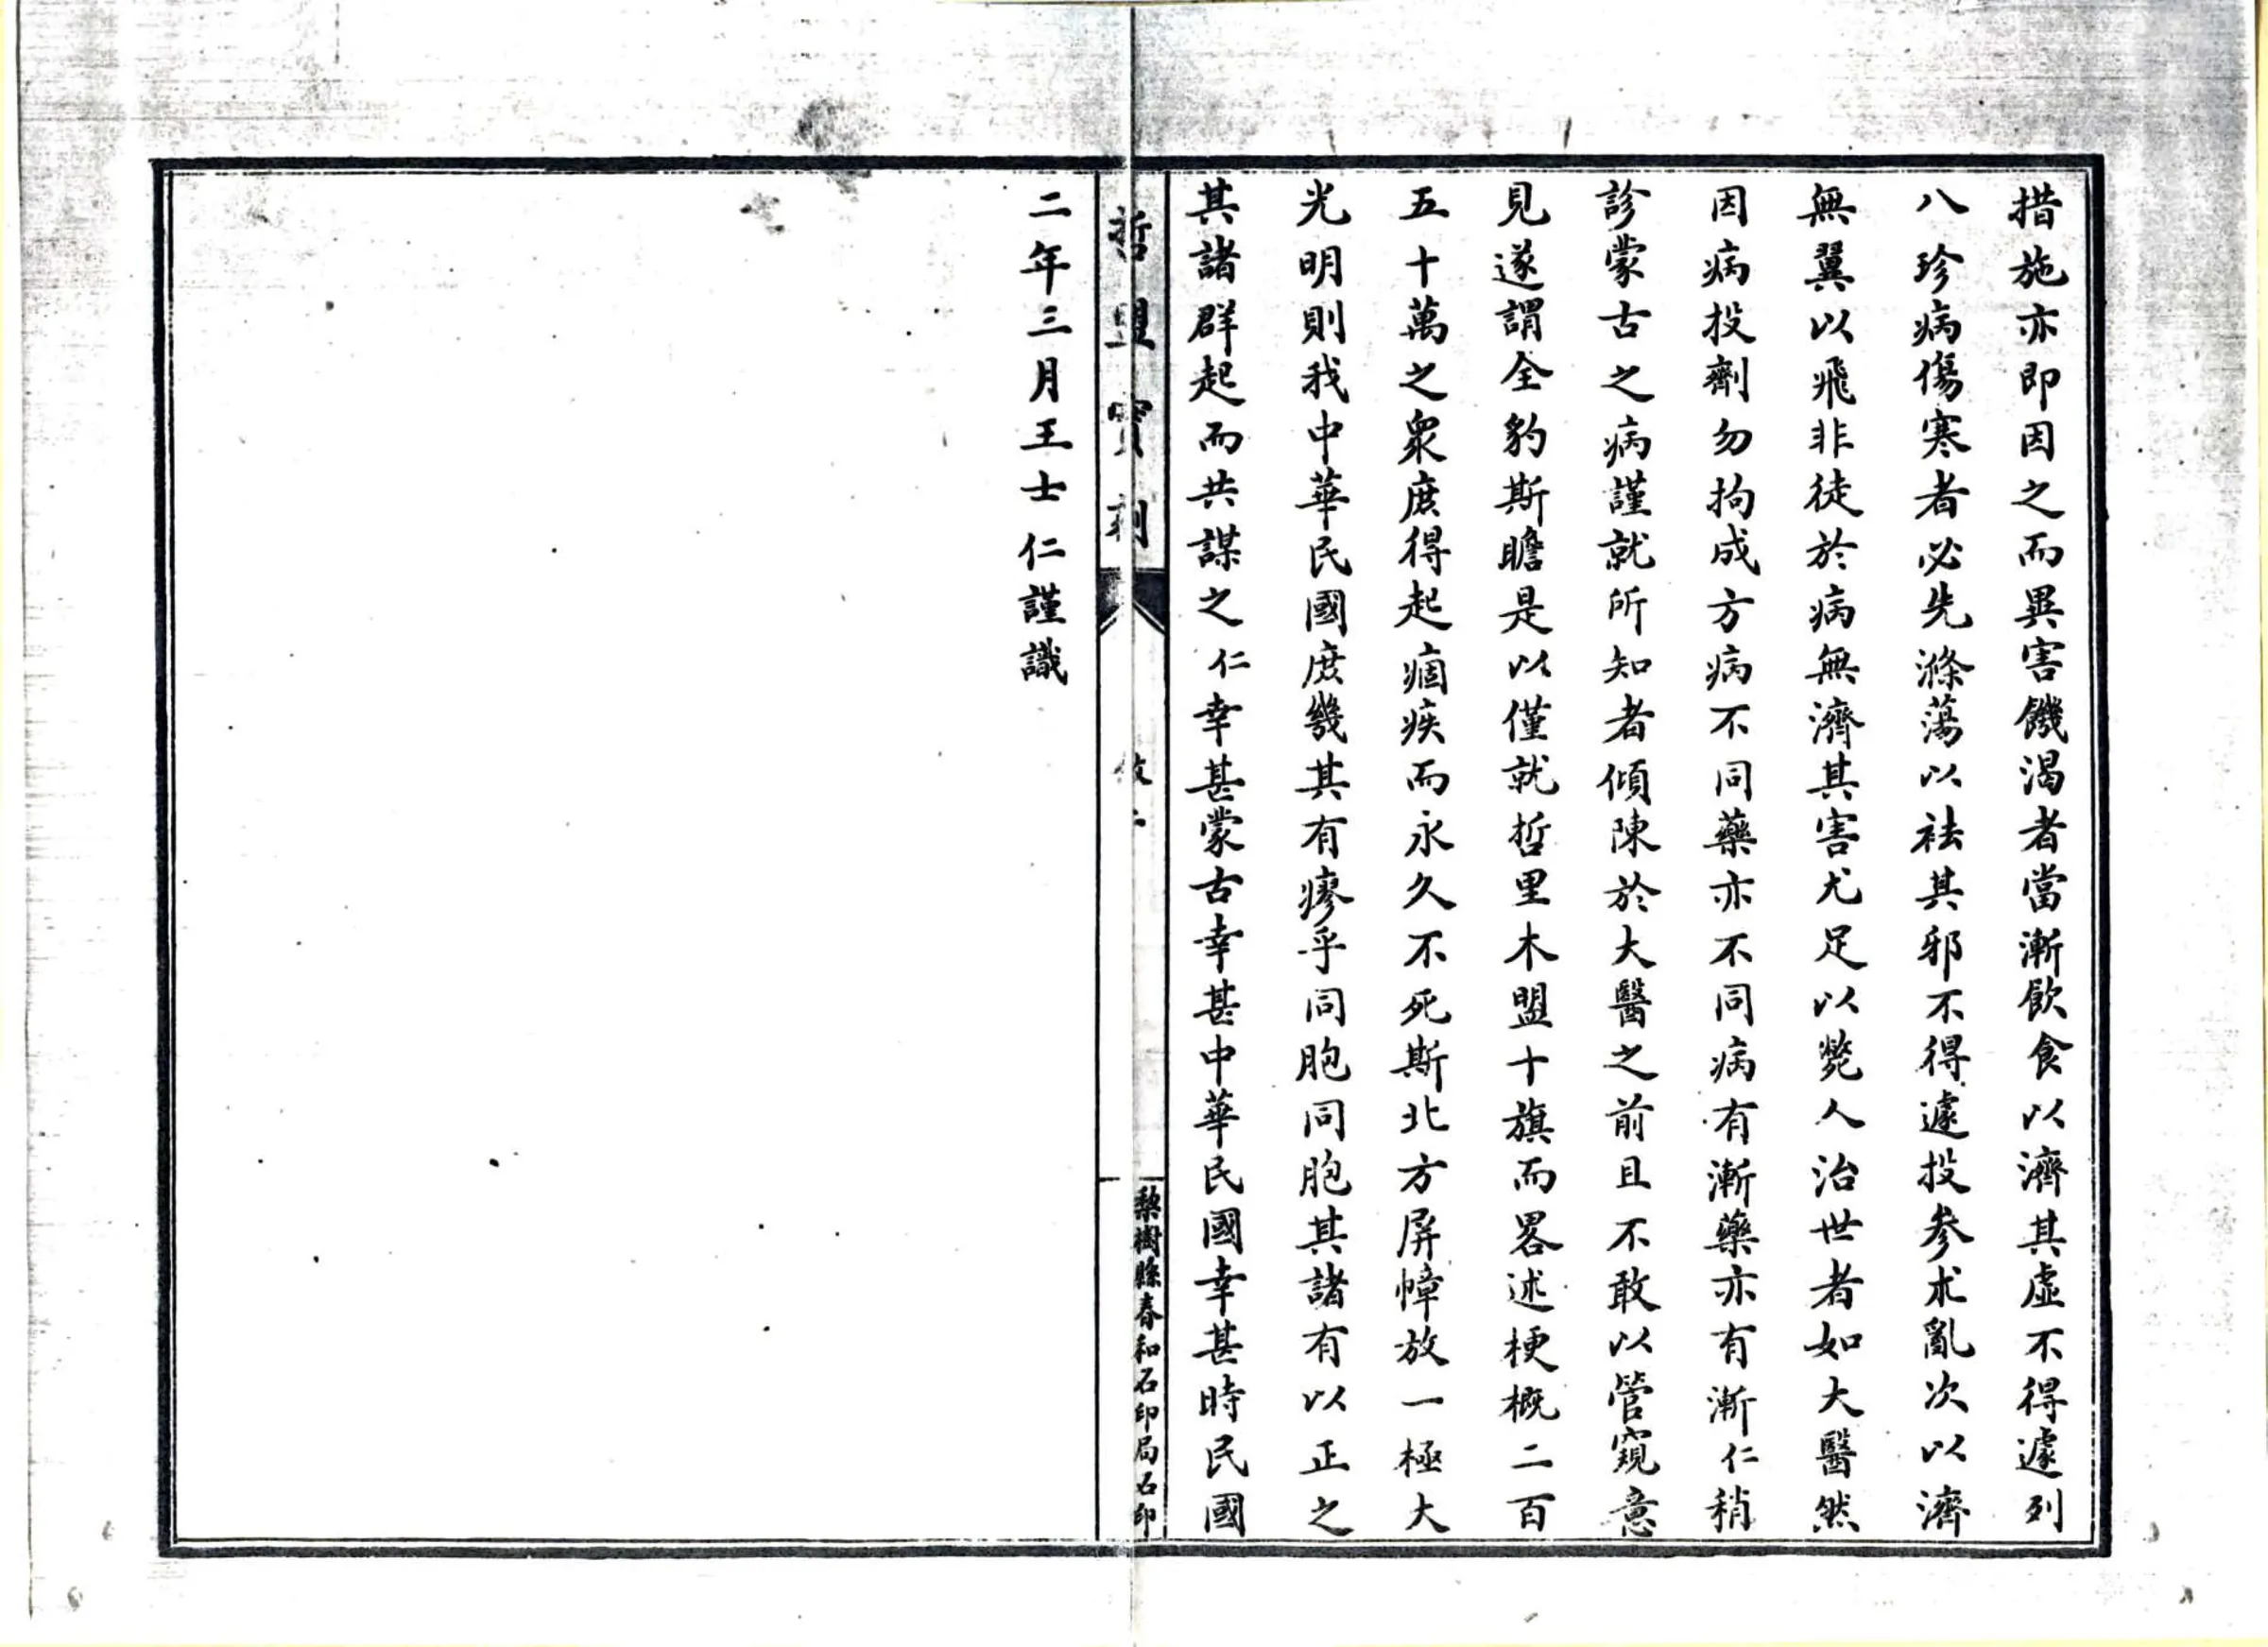 措施亦即因之而異害饑渴者當漸飲食以濟其虛不得遽列
八珍病傷寒者必先滌蕩以祛其邪不得遽投参朮亂次以濟
無翼以飛非徒於病無濟其害尤足以斃人治世者如大醫然
因病投劑勿拘成方病不同藥亦不同病有漸藥亦有漸仁稍
診蒙古之病謹就所知者傾陳於大醫之前且不敢以管窺意
見遂謂全豹斯瞻是以僅就哲里木盟十旗而畧述梗概二百
五十萬之衆庶得起痼疾而永久不死斯北方屏幛放一極大
光明則我中華民國庶幾其有瘳乎同胞同胞其諸有以正之
其諸群起而共謀之仁幸甚蒙古幸甚中華民國幸甚時民國
哲盟實剤 敘二
梨樹縣春和石印局石印
二年三月王士仁謹識